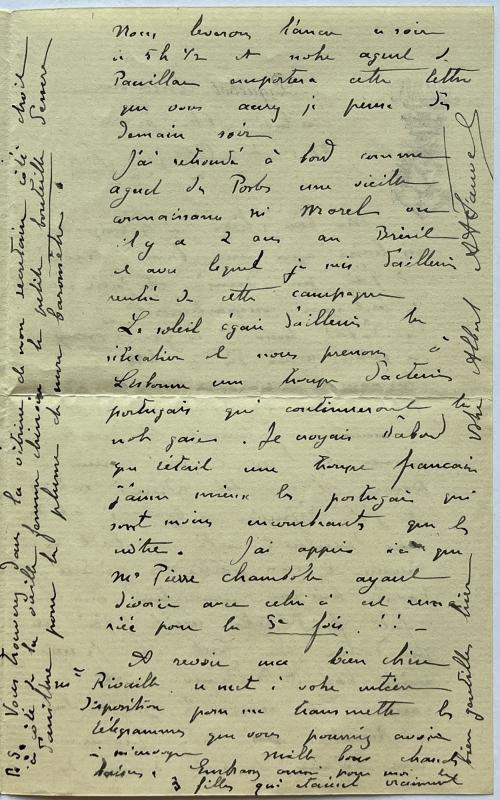 Nous leverons l'ancre ce soir
à 5h 1/2 et notre agent de
Pauillac emportera cette lettre
que vous aurez je pense dès
demain soir
J'ai retrouvé à bord comme
agent des Postes une vieille
connaissance Mr Morel vu
il y a 2 ans au Brésil
et avec lequel je suis d'ailleurs
rentré de cette campagne
Le soleil égaie d'ailleurs la
situation et nous prenons à
Lisbonne une troupe d'acteurs
portugais qui continueront la
note gaie. Je croyais d'abord
que c'était une troupe française
j'aime mieux les portugais qui
sont moins encombrants que les
nôtres. J'ai appris ici que
Mr Pierre ayant
divorcé avec celui-ci est
riée pour la 5e fois !!! _
Au revoir ma bien chère
Rivaille se met à votre entière
disposition pour me transmettre les
télégrammes que vous pourriez avoir
à m'envoyer mille bons chauds
baisers. Embrassez aussi pour moi les
3 filles qui étaient vraiment
bien gentilles hier
Votre Albert
P.S. Vous trouverez dans la vitrine de mon secrétaire côté droit
à côté de la vieille femme chinoise la petite bouteille d'encre
pour la plume de mon baromètre.